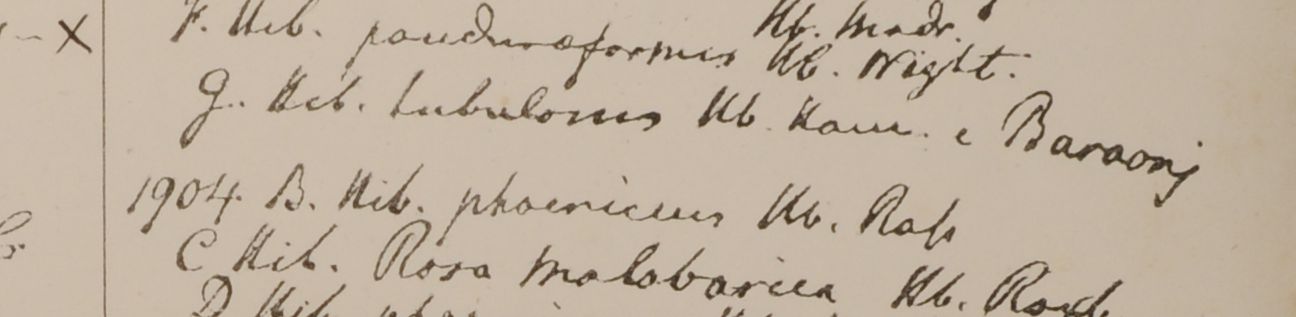 - X
Hb. Madr.
F. Hib. panduraeformis Hb. Wight.
G. Hib. tubulosus Hb. Ham. e Baraonj
1904. B. Hib. phoenicius Hb. Rab
C Hib. Rosa malabarica Hb. Roxb.
D Hib.